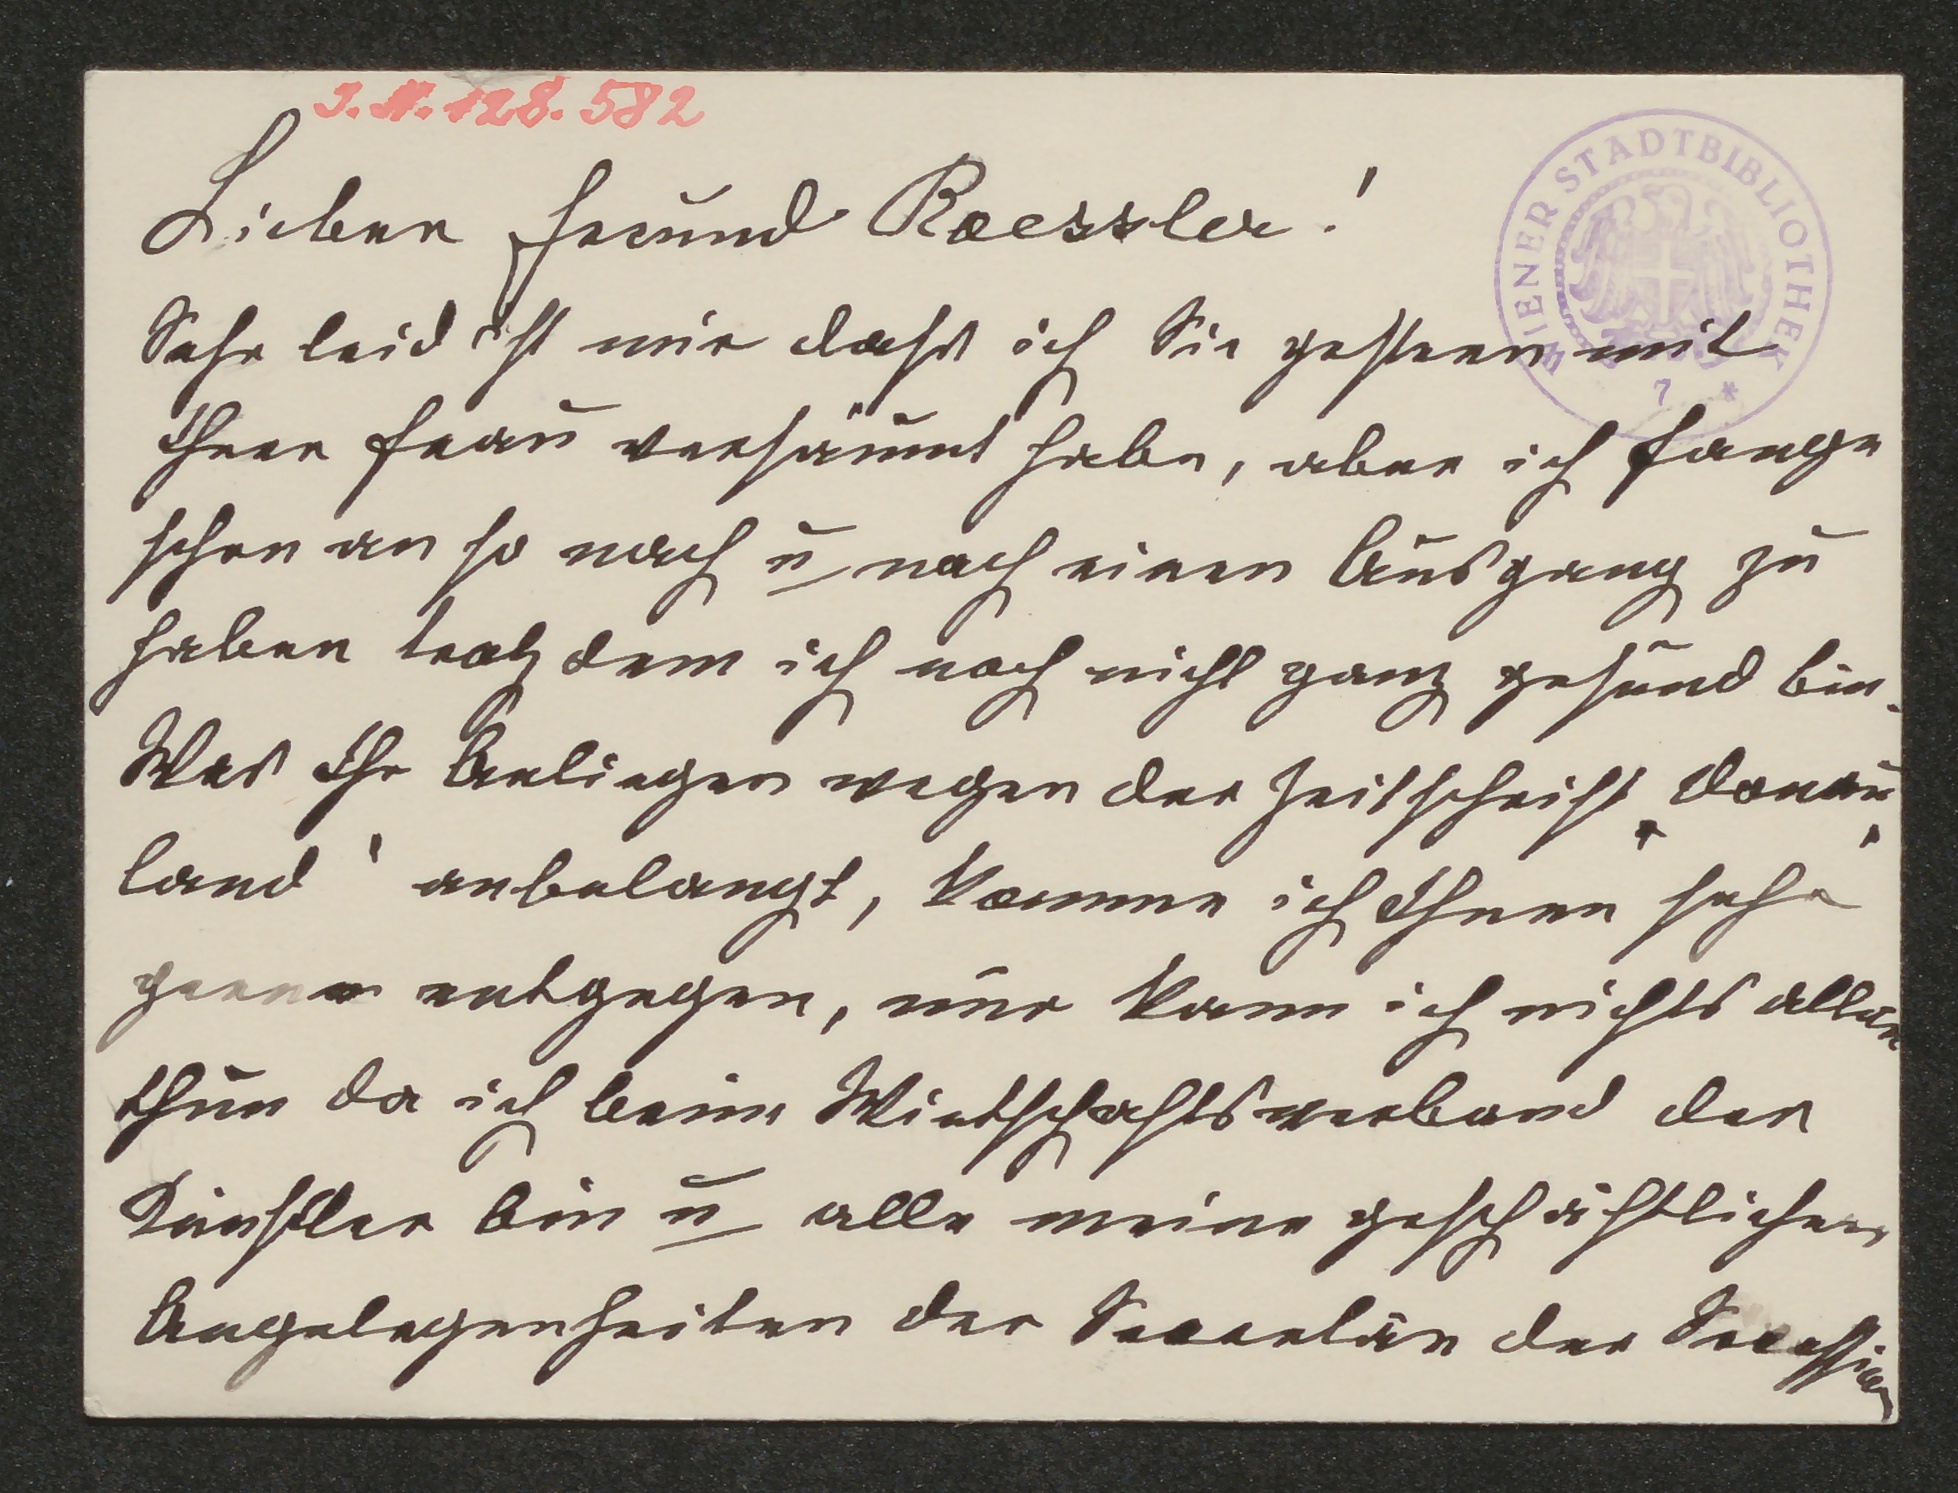 I.N. 128.582
WIENER STADTBIBLIOTHEK
7 *
Lieber Freund Roessler!
Sehr leid ist mir dass ich Sie gestern mit
Ihrer Frau versäumt habe, aber ich fange
schon an so nach u nach einen Ausgang zu
haben trotzdem ich noch nicht ganz gesund bin.
Was Ihr Anliegen wegen der Zeitschrift „Donau„
land" anbelangt, komme ich Ihnen sehr
gerne entgegen, nur kann ich nichts allein
thun da ich beim Wirtschaftsverband der
Künstler bin u alle meine geschäftlichen
Angelegenheiten der Secretär der Secession